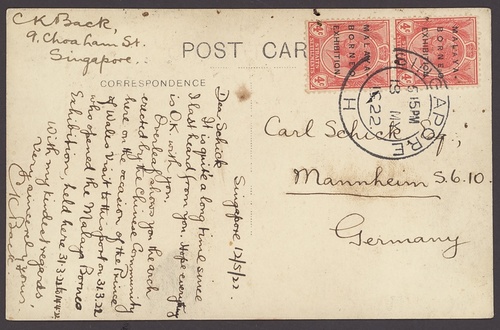 C K Back,
9. Choa ham St.
Singapore..
POST CAR
CORRESPONDENCE
MALAYA
BORNEO
EXHIBITION
MALAYA
BORNEO
EXHIBITION
APORE
5.15PM
13 MY
22
H
Carl Schick
Mannheim S.6.10.
Germany
Singapore 12/5/22.
Dear Schick
It is quite a long time since
I last heard from you. Hope everything
is O.K. with you.
Overleaf shows you the arch
erected by the Chinese Community
here on the occasion of the Prince
of Wales visit to this port on 31.3.22
who opened the Malaya Borneo
Exhibition, held here 31.3.22 to
With my kindest regards,
Very sincerely yours,
C K Back